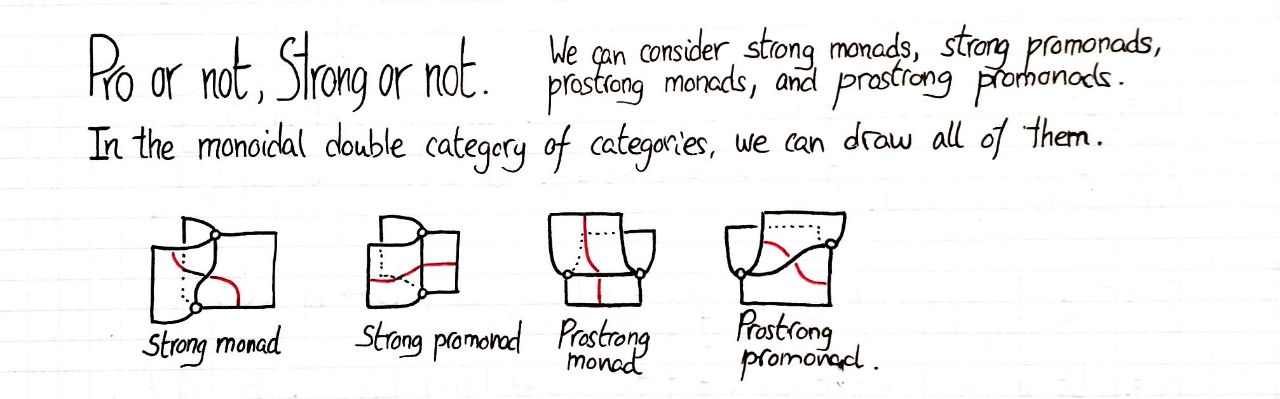 Pro or not, Strong or not.
We can consider strong monads, strong promonads,
prostrong monads, and prostrong promonads.
In the monoidal double category of categories, we can draw all of them.
Strong monad
Strong promonad
Prostrong
monad
Prostrong
promonad.